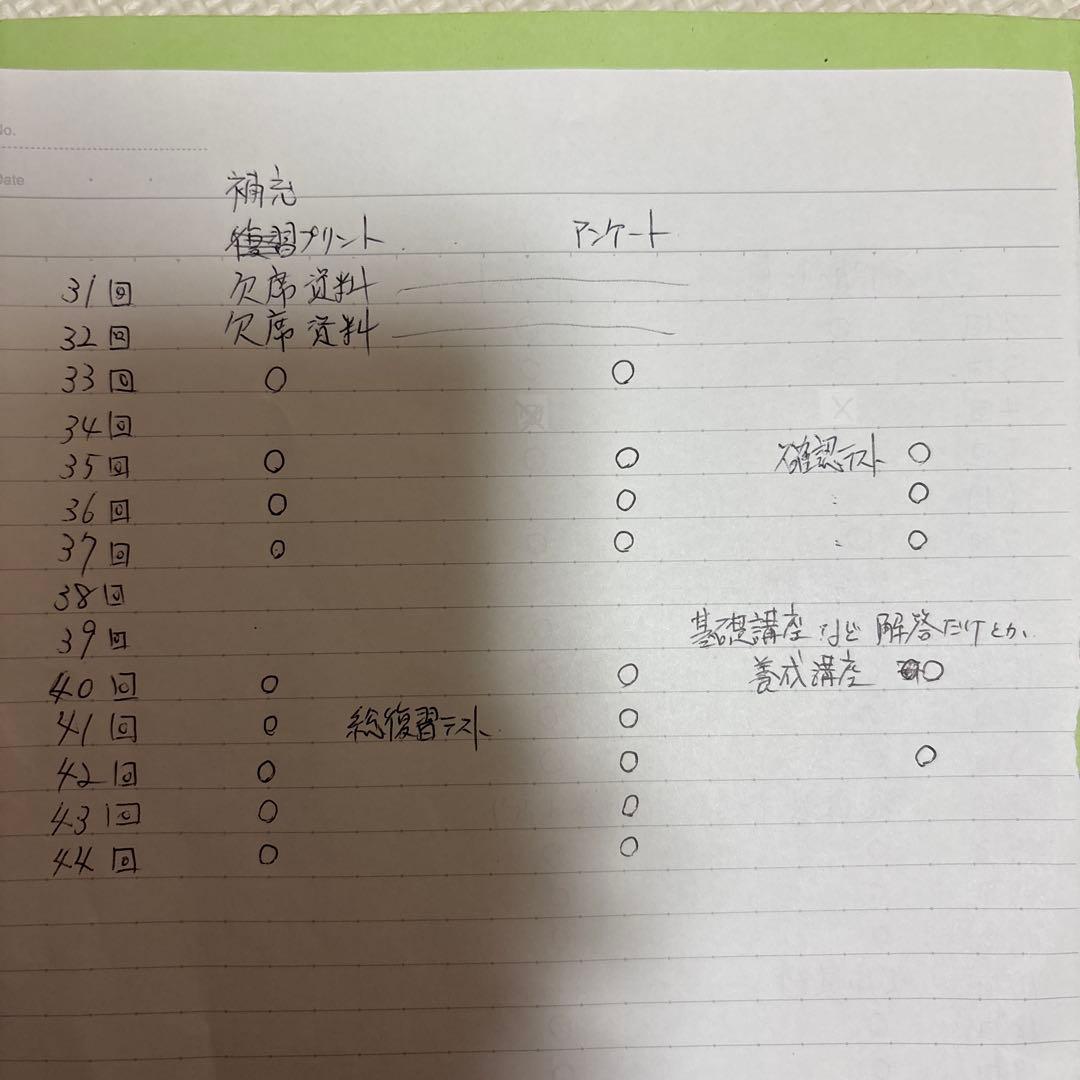 No.
Date
補充
復習プリント アンケート
31回 欠席資料
32回 欠席資料
33回 ○ ○
34回
35回 ○ ○ 確認テスト ○
36回 ○ ○ 〃 ○
37回 ○ ○ 〃 ○
38回
39回 基礎講座など 解答だけとか、
40回 ○ ○ 養成講座 ○
41回 ○ 総復習テスト ○
42回 ○ ○ ○
43回 ○ ○
44回 ○ ○